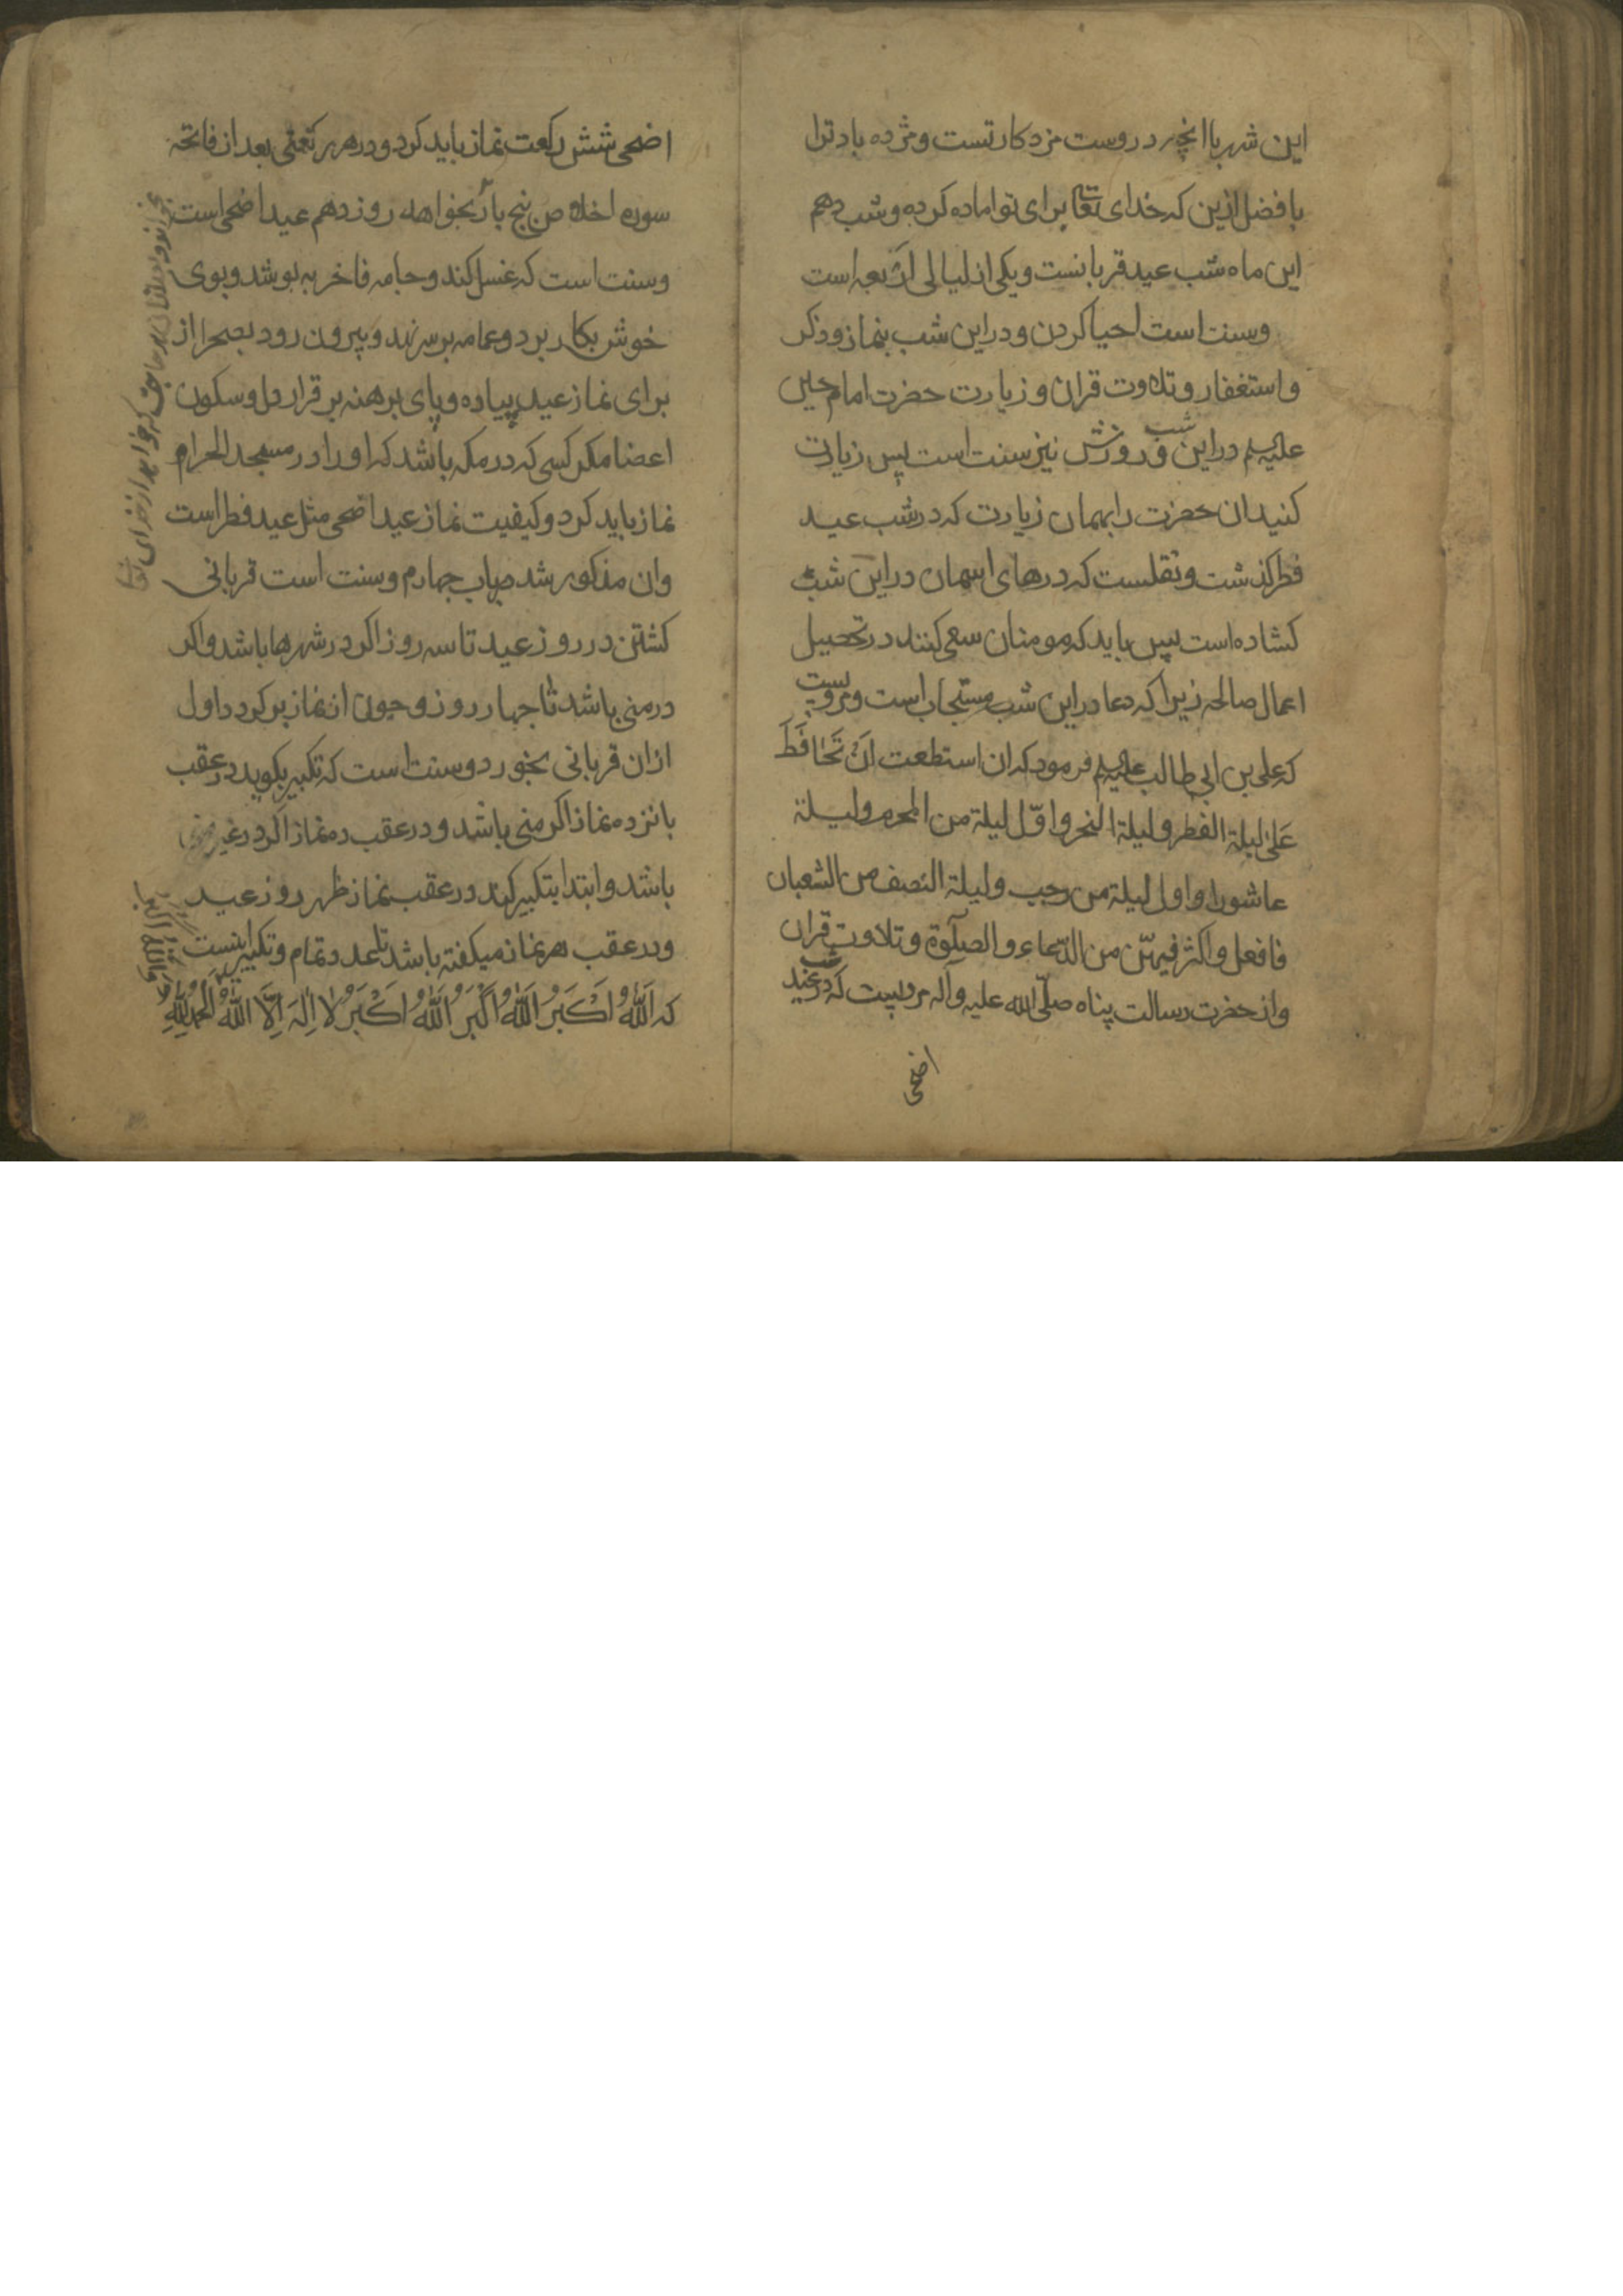 این شهر با انچه در روست مزد کار تست و مژده باد ترا
با فضل ازین که خدای تعا برای تو اماده کرده و شب دهم
این ماه شب عید قربانست و یکی از لیالی اربعه است
وسنت است احیا کردن و در این شب بنماز و ذکر
و استغفار و تلاوت قران و زیارت حضرت امام حسین
علیه‌لم در این شب و روزش نیز سنت است پس زیارت
کنید ان حضرت را بهمان زیارت که در شب عید
فطر کذشت و نقلست که درهای اسمان در این شب
کشاده است پس باید که مومنان سعی کنند در تحصیل
اعمال صالحه زیرا که دعا در این شب مستجاب است و مرویست
که علی بن ابی طالب علیه‌لم فرمود که ان استطعت اَنْ تَحَافَظَ
عَلیٰ لیلة الفطر و لیلة النحر و اوّل لیلة من المحرم و لیلة
عاشورا و اول لیلة من رجب و لیلة النصف من الشعبان
فافعل و اکثر فیهنّ من الدّعاء و الصلوٰة و تلاوت قران
و از حضرت رسالت پناه صلّی الله علیه و آله مرویست که در شب عید
اضحی
اضحی شش رکعت نماز باید کرد و در هر رکعتی بعد از فاتحه
سوره اخلاص پنج بار بخواهد روز دهم عید اضحی است
وسنت است که غسل کند و جامه فاخر به پوشد و بوی
خوش بکار برد و عمامه بر سر نهد و بیرون رود بصحرا از
برای نماز عید پیاده و پای برهنه بر قرار دل و سکون
اعضا مکر کسی که در مکه باشد که او را در مسجد الحرام
نماز باید کرد و کیفیت نماز عید اضحی مثل عید فطر است
وان مذکور شد بباب جهارم وسنت است قربانی
کشتن در روز عید تا سه روز اکر در شهرها باشد و اکر
در منی باشد تا جهار روز و جون از نماز بر کردد اول
ازان قربانی بخورد وسنت است که تکبیر بکوید در عقب
پانزده نماز اکر منی باشد و در عقب ده نماز اکر در غیر منی
باشد و ابتدا بتکبیر کند در عقب نماز ظهر روز عید
و در عقب هر نماز میکفته باشد تا عدد تمام و تکبیر اینست
که اَللّٰهُ اَکْبَرُ اَللّٰهُ اَکْبَرُ اَللّٰهُ اَکْبَرُ لا اِلٰهَ اِلَّا اللّٰهُ اَلْحَمْدُ لِلّٰهِ